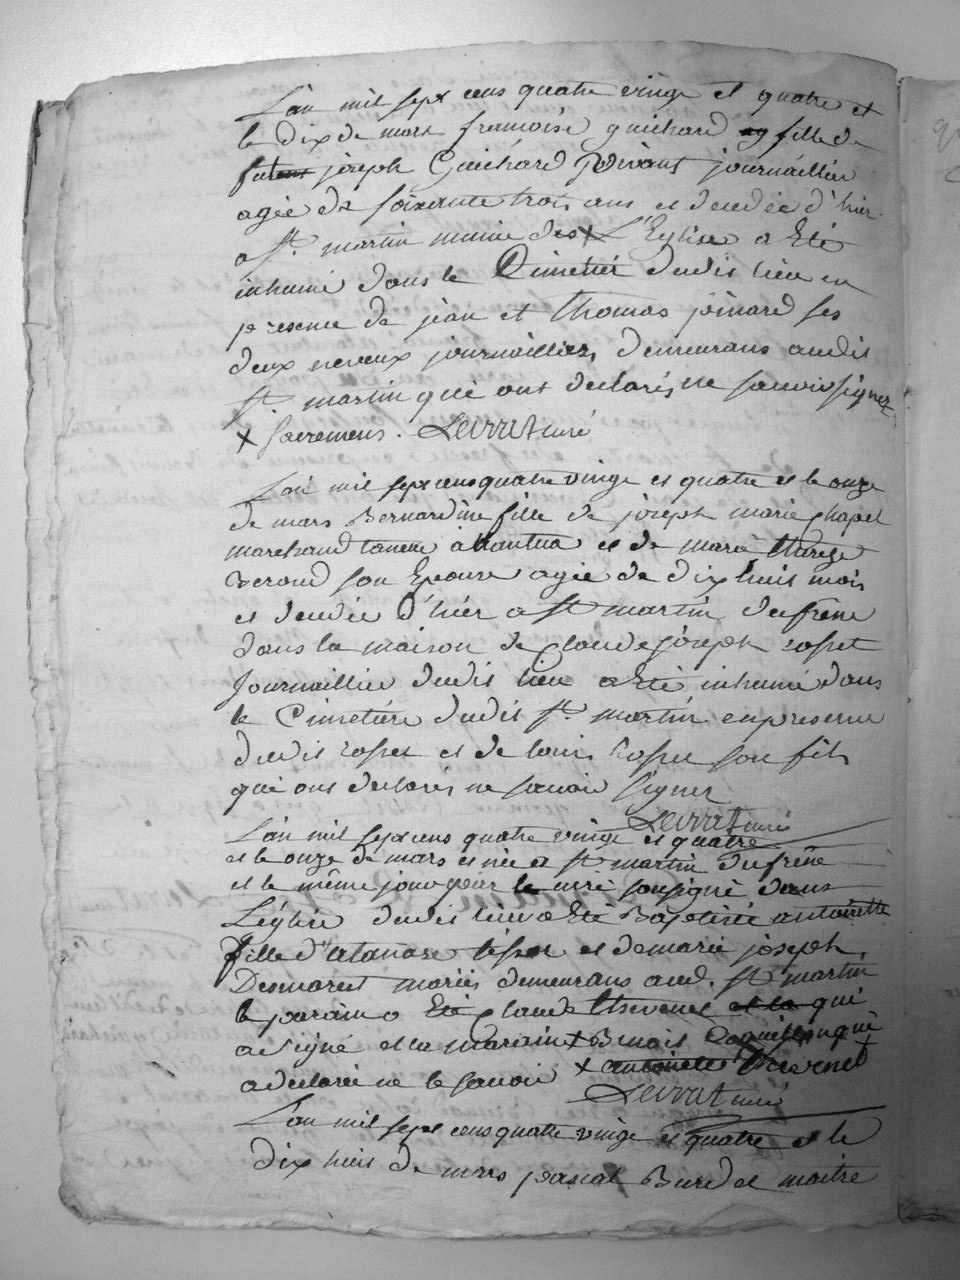 L'an mil sept cens quatre vingt et quatre et
le dix de mars francoise guichard fille de
joseph Guichard vivant journaillier
agée de soixante trois ans et decedée d'hier
a St. martin munie des x L'Eglise a Eté
inhumé dans le Cimetier dudit lieu en
presence de jean et thomas joinard ses
deux neveux journailliers demeurans audit
St. martin qui ont declarés ne savoir signer
x sacremens. Levrat curé
L'an mil sept cens quatre vingt et quatre et le onze
de mars Bernardine fille de joseph marie chapel
marchand taneur a Nantua et de marie thereze
verond son Epouse agée de dix huit mois
et decedée d'hier a St martin du frêne
dans la maison de claude joseph rosset
Journaillier dudit lieu a Eté inhumé dans
le Cimetiére dudit St. martin en presence
dudit rosset et de louis rosset son fils
qui ont declarés ne savoir signer
Levrat curé
L'an mil sept cens quatre vingt et quatre
et le onze de mars est née a St martin du frêne
et le même jour par le curé soussigné dans
L'églize dudit lieu a Eté Baptisée antoinette
fille d'atanase et de marie joseph
Desmarest mariés demeurans aud. St martin
le parain a Eté claude thevenet et la qui
a signé et la maraine x Benoit qui
a declarée ne le savoir x antoinette thevenet
Levrat curé
L'an mil sept cens quatre vingt et quatre et le
dix huit de mars pascal Burdet maitre